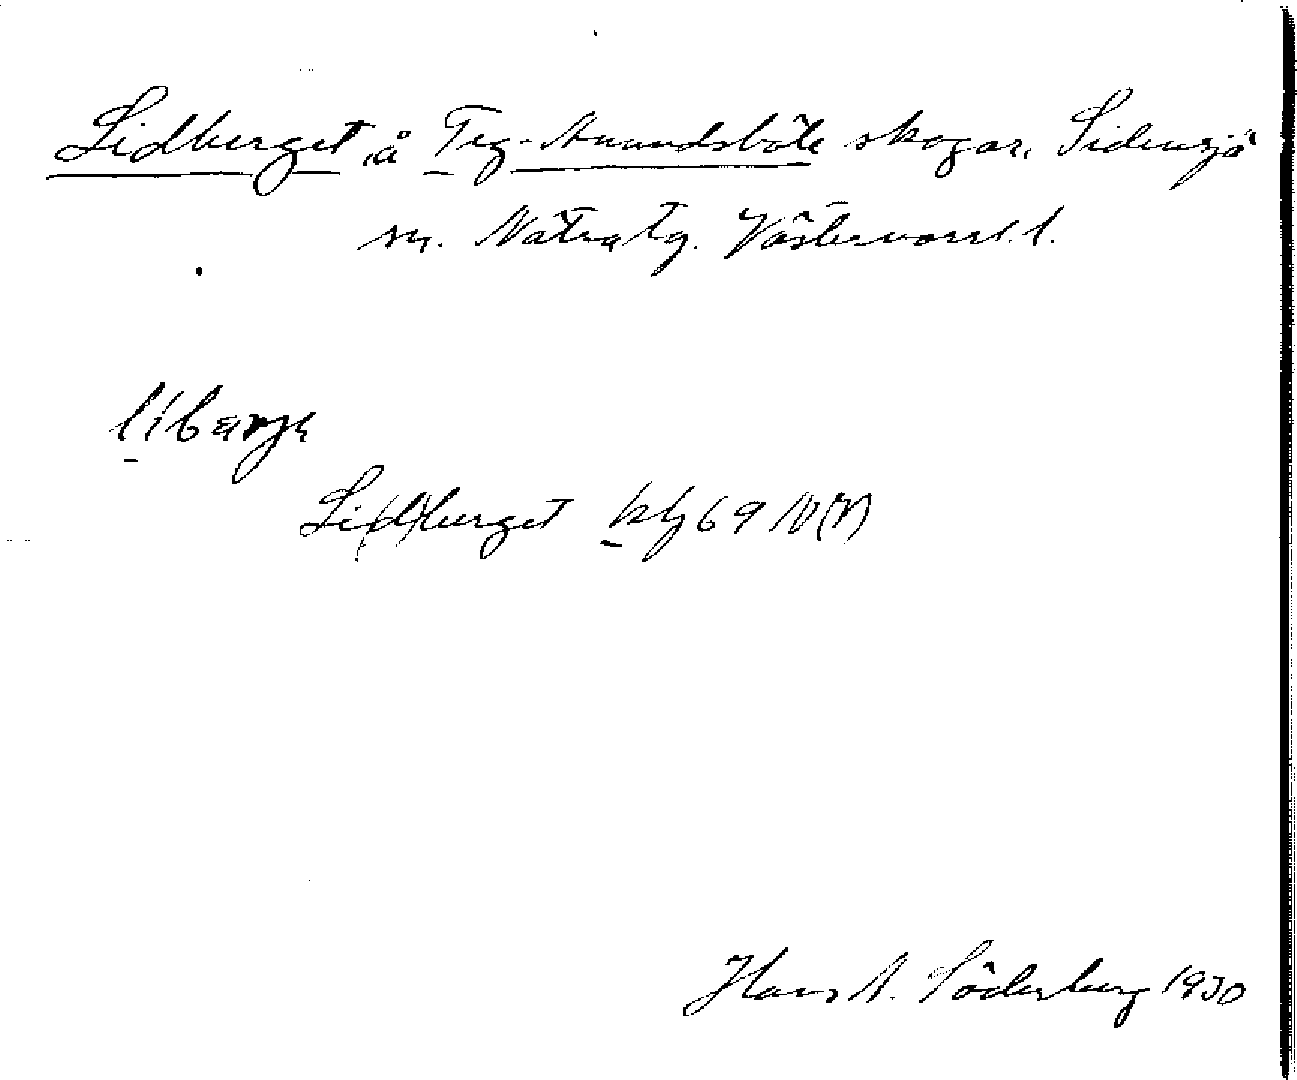 Lidberget å Teg-Anundsböle skogar, Sidensjö
sn. Nätra tg. Västernorrl. l.
libærjə
Li(d)berget kbg 69 N(V)
Hans A. Söderberg 1930